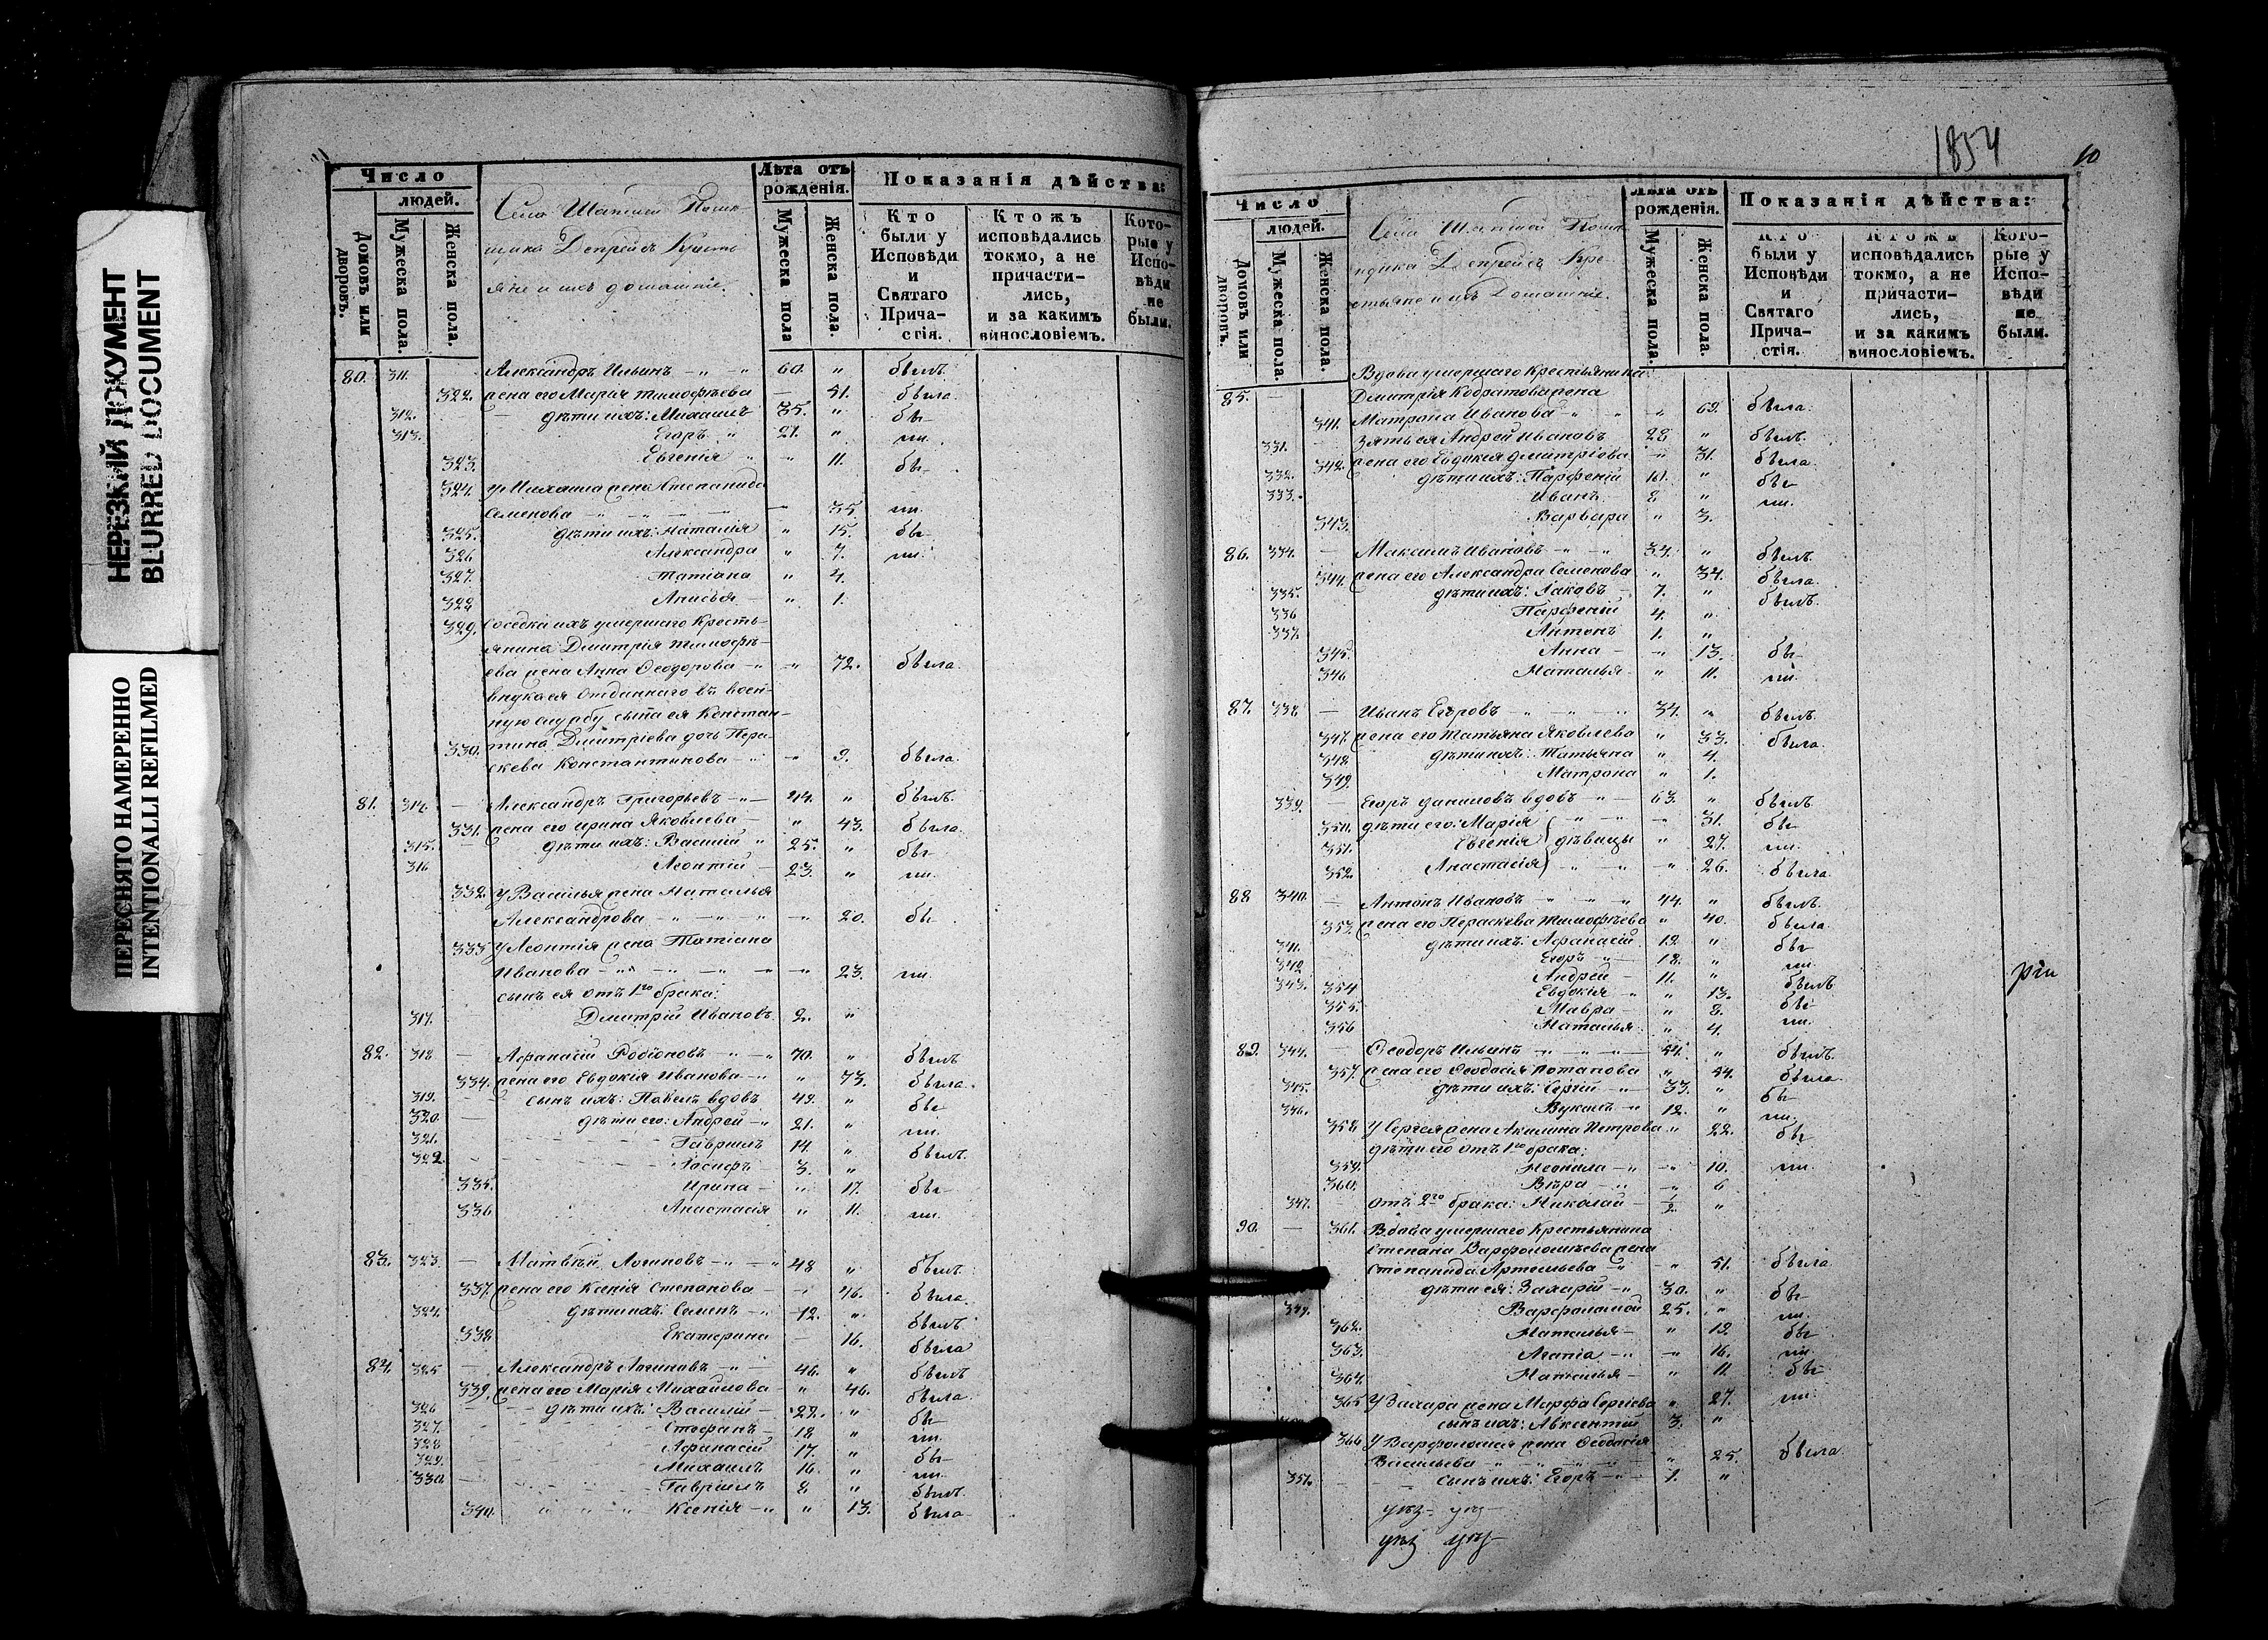 НЕРЕЗКИЙ ДОКУМЕНТ
BLURRED DOCUMENT
ПЕРЕСНЯТО НАМЕРЕННО
INTENTIONALLI REFILMED
Число
людей.
Домовъ или дворовъ.
Мужеска пола.
Женска пола.
Села
крестьяне и ихъ домашніе.
Лѣта отъ рожденія.
Мужеска пола
Женска пола.
Показанія дѣйства:
Кто были у Исповѣди и Святаго Прича-стія.
Ктожъ исповѣдались токмо, а не причасти-лись, и за какимъ винословіемъ.
Кото-рые у Испо-вѣди не были.
80. 311. — Александръ Ильинъ 60. " былъ
322. жена его Марія Тимофѣева — 51. была.
312. — дѣти ихъ: Михаилъ 35. " бы-
313. Егоръ 21. " ли.
323. Евгенія " 11. бы-
324. у Михаила жена Степанида
Семенова 35 ли.
325. дѣти ихъ: Наталія " 15. бы-
326 Александра " 7. ли.
327. Татіана " 4.
328 Анисья " 1.
329. Соседка ихъ умершаго кресть-
янина Дмитрія Тимофѣ-
ева жена Анна Ѳеодорова 72. была.
внука ея отданнаго въ воен-
ную службу сына ея Констан-
330. тина Дмитріева дочь Пара-
скева Константинова 9. была.
81. 314. — Александръ Григорьевъ 44. " былъ.
331. жена его Ирина Яковлева " 43. была.
315. — дѣти ихъ: Василій 25. " бы-
316 Леонтій 23. " ли.
332. у Василья жена Наталья
Александрова 20. бы-
333 у Леонтія жена Татіана
Иванова 23. ли.
сынъ ея отъ 1го брака:
317. Дмитрій Ивановъ 2. "
82. 318 — Афанасій Родіоновъ 70. " былъ
334. жена его Евдокія Иванова " 73. была.
319. сынъ ихъ: Павелъ вдовъ 49. " бы-
320. дѣти его: Андрей 21. " ли.
321. Гавріилъ 14. " былъ.
322. Іосифъ 3. "
335. Ирина " 17. бы-
336 Анастасія " 11. ли.
83. 323 — Матвѣй Логиновъ 48 " былъ.
337. жена его Ксенія Степанова 46. была.
324. дѣти ихъ: Семенъ 12. " былъ.
338. Екатерина — 16. была
84. 325 — Александръ Логиновъ 46. " былъ
339. жена его Марія Михайлова " 46. была.
326 дѣти ихъ: Василій 22. " бы-
327. Стефанъ 18 " ли.
328 Афанасій 17. " бы-
329. Михаилъ 16. " ли.
330. Гавріилъ 8 " былъ.
340. Ксенія " 13. была
1854
10
Число
людей.
Домовъ или дворовъ.
Мужеска пола.
Женска пола.
Села
крестьяне и ихъ домашніе.
Лѣта отъ рожденія.
Мужеска пола.
Женска пола.
Показанія дѣйства:
Кто были у Исповѣди и Святаго Прича-стія.
Ктожъ исповѣдались токмо, а не причасти-лись, и за какимъ винословіемъ.
Кото-рые у Испо-вѣди не были.
Вдова умершаго крестьянина
85. — Дмитрія Кодратова жена
341. Матрона Иванова " 69. была.
331. — Зять ея Андрей Ивановъ 28 " былъ.
342. жена его Евдокія Дмитріева 31. была.
332. дѣти ихъ: Парфеній 10. " бы-
333. Иванъ 8 " ли.
343. Варвара " 3.
86. 334. — Максимъ Ивановъ 34. " былъ.
344. жена его Александра Семенова " 34. была.
335. дѣти ихъ: Іаковъ 7. " былъ.
336 Парфеній 4. "
337. Антонъ 1. "
345. Анна " 13. бы-
346 Наталья " 11. ли.
87. 338 — Иванъ Егоровъ 34. " былъ.
347. жена его Татьяна Яковлева " 33. была.
348. дѣти ихъ: Татьяна " 4.
349. Матрона " 1.
339. — Егоръ Даниловъ вдовъ 63. " былъ
350. дѣти его: Марія 31. бы-
351. Евгенія дѣвицы " 27. ли.
352. Анастасія 26. была
88 340. — Антонъ Ивановъ 44. " былъ.
353. жена его Параскева Тимофѣева " 40. была
341. дѣти ихъ: Афанасій 19. " бы-
342 Егоръ 18. " ли.
343. Андрей 11. " былъ
354 Евдокія " 13. бы-
355. Мавра " 8. ли.
356 Наталья " 4.
89. 344. — Ѳеодоръ Ильинъ 54. " былъ.
357. жена его Ѳеодосія Потапова " 54. была.
345. дѣти ихъ: Сергій 33. " бы-
346. Вуколъ 19. " ли.
358 У Сергея жена Акилина Петрова " 22. бы-
дѣти его отъ 1го брака:
359. Неонила 10. ли.
360. Вѣра 6
347. отъ 2го брака: Николай ½ "
90. — 361. Вдова умершаго крестьянина
Степана Варфоломѣева жена
Степанида Артемьева 51. была.
дѣти ея: Захарій 30. " бы-
349. Варфоломей 25. " ли.
362. Наталья " 19. бы-
363. Агапія 16. ли.
364. Наталья " 11. бы-
365 У Захара жена Марфа Сергіева " 27. ли.
сынъ ихъ: Авксентій 3. "
366 У Варфоломея жена Ѳеодосія
Васильева " 25. была
351. сынъ ихъ: Егоръ 1. "